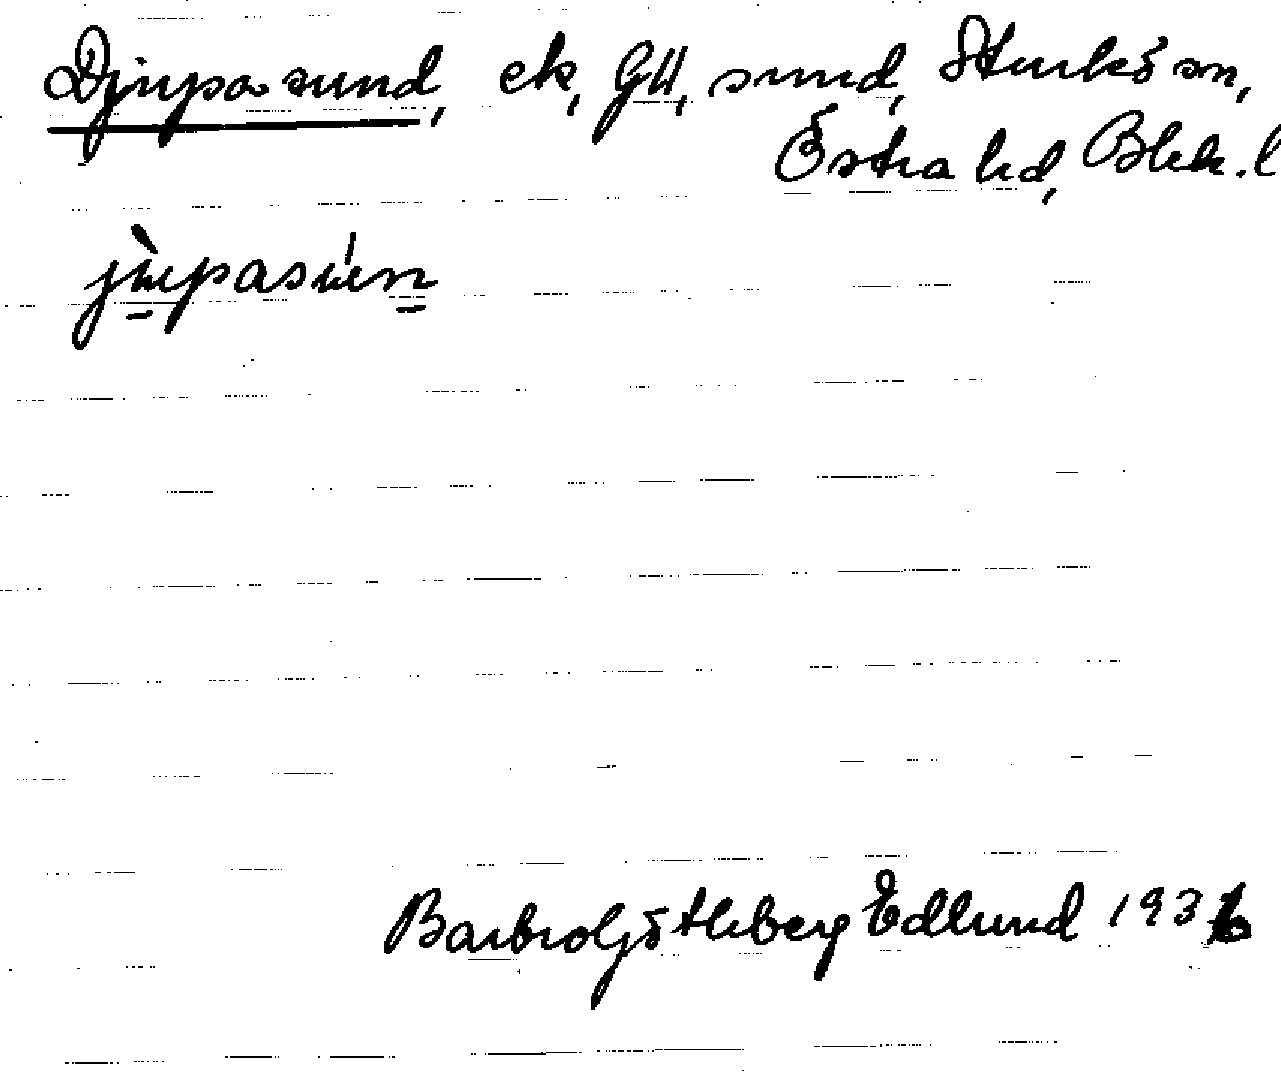 Djupasund, ek, GU, sund, Sturkö sn,
Östra hd, Blek. l
jùpasún
Barbro Götleberg Edlund 1936